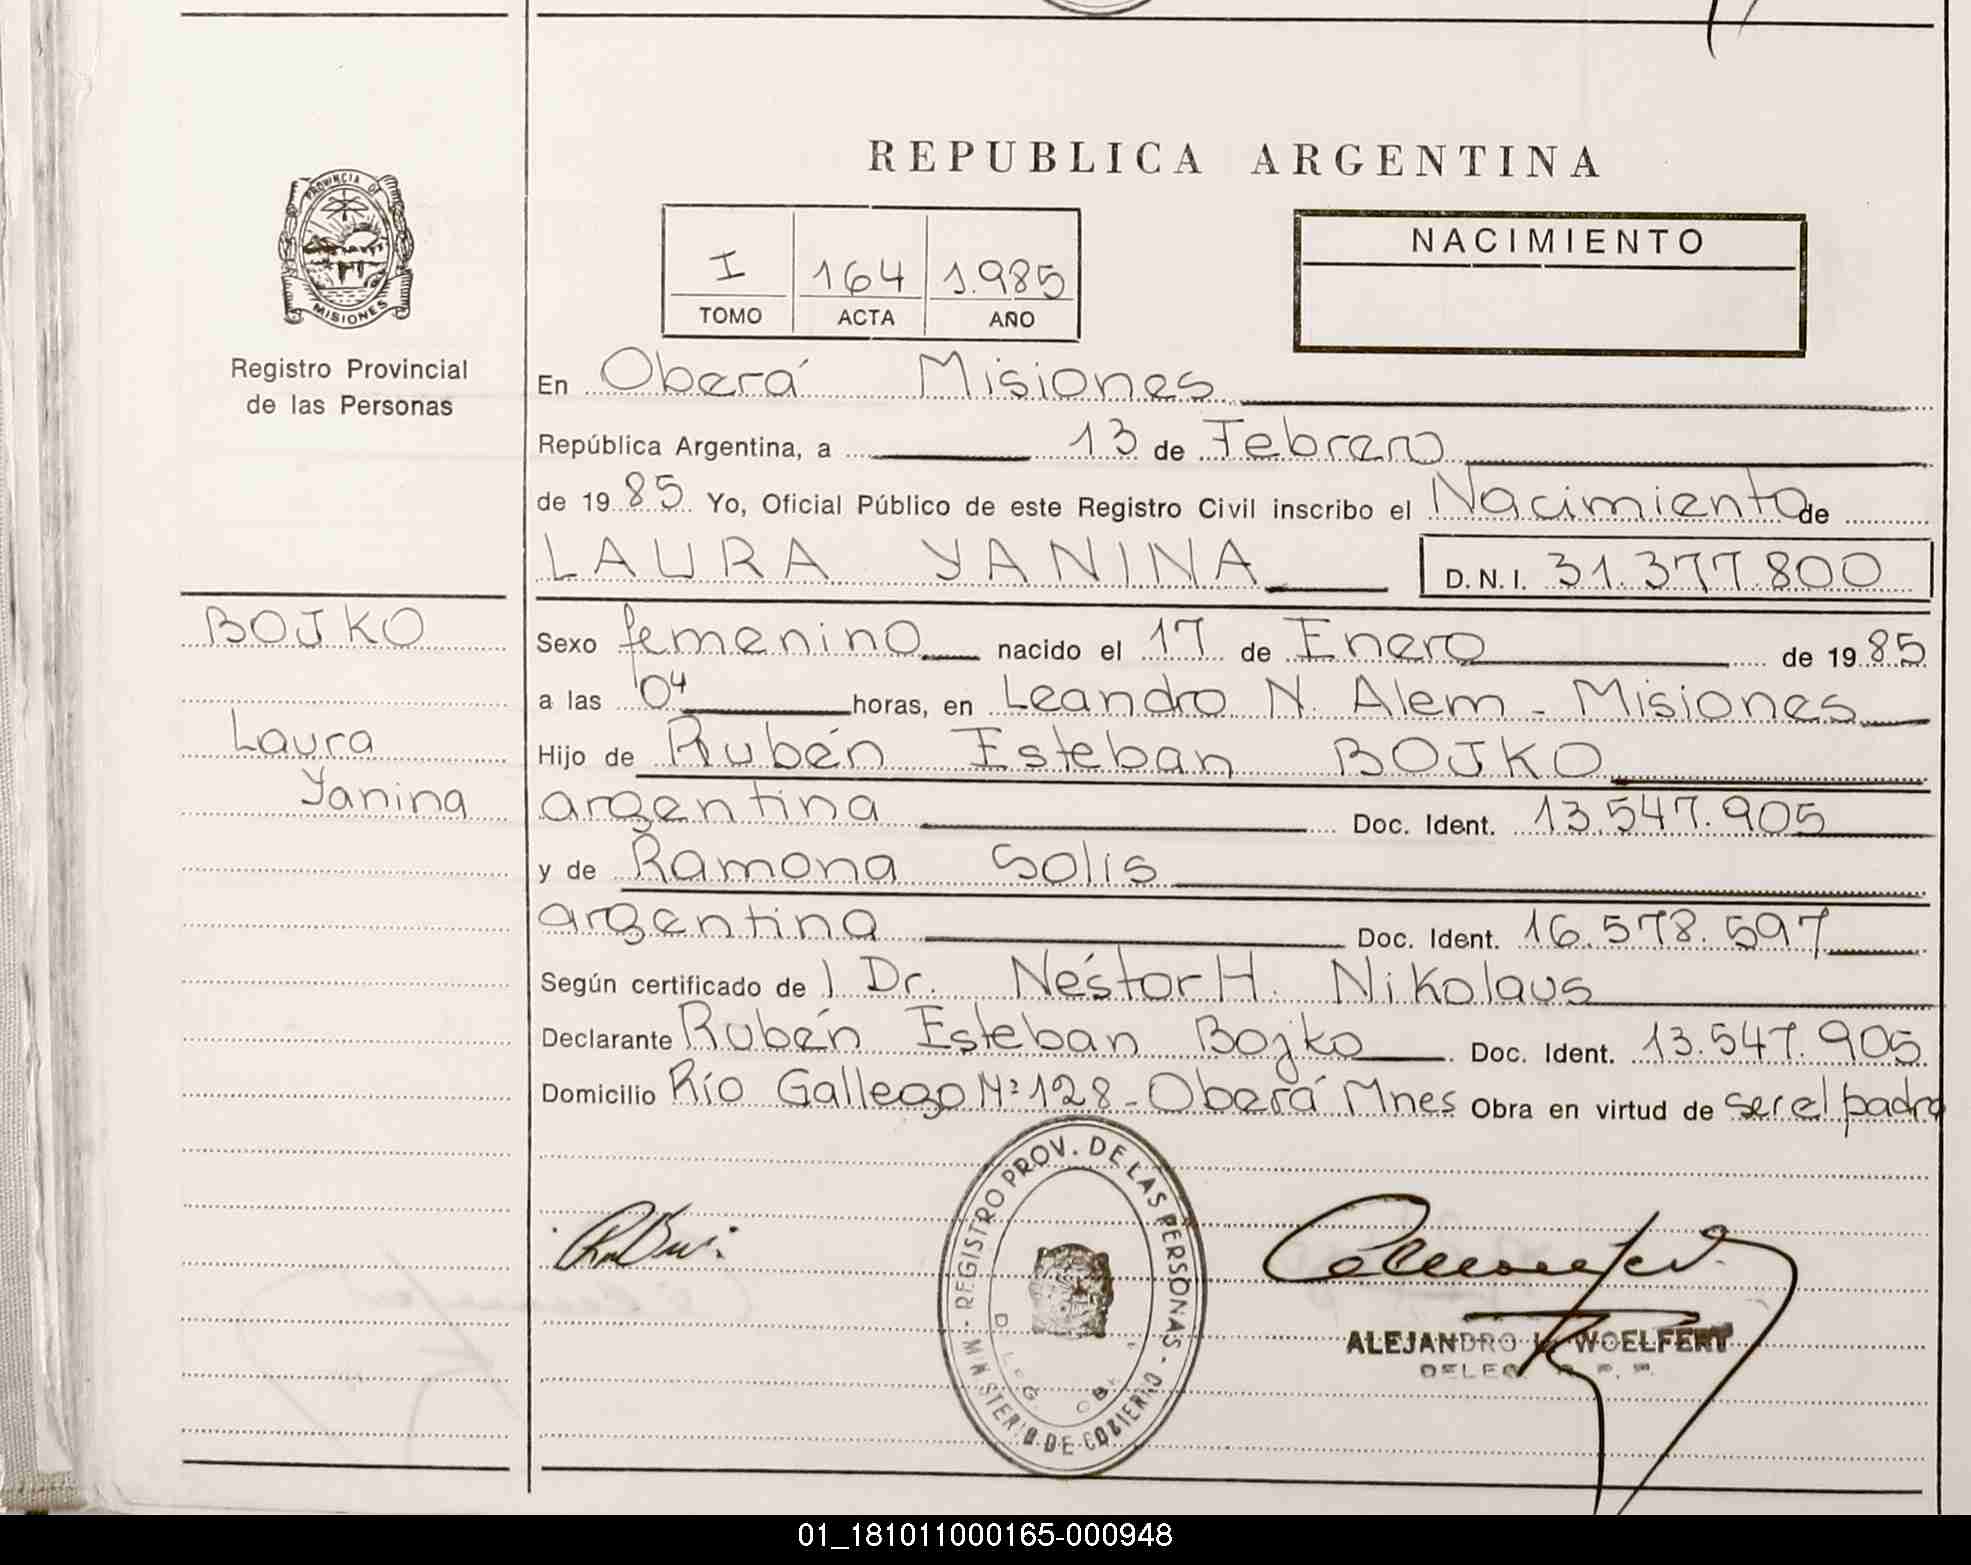 REPUBLICA ARGENTINA
PROVINCIA DE
MISIONES
Registro Provincial
de las Personas
I 164 1.985
TOMO ACTA AÑO
NACIMIENTO
En Oberá Misiones
República Argentina, a 13 de Febrero
de 1985 Yo, Oficial Público de este Registro Civil inscribo el Nacimiento de
LAURA YANINA D.N.I. 31.377.800
BOJKO
Laura
Yanina
Sexo femenino nacido el 17 de Enero de 1985
a las 04 horas, en Leandro N. Alem - Misiones
Hijo de Rubén Esteban BOJKO
argentina Doc. Ident. 13.547.905
y de Ramona Solis
argentina Doc. Ident. 16.578.597
Según certificado de l Dr. Néstor H. Nikolaus
Declarante Rubén Esteban Bojko Doc. Ident. 13.547.905
Domicilio Río Gallego Nº 128 - Oberá Mnes Obra en virtud de ser el padre
REGISTRO PROV. DE LAS PERSONAS - MINISTERIO DE GOBIERNO
ALEJANDRO WOELFERT
01_181011000165-000948